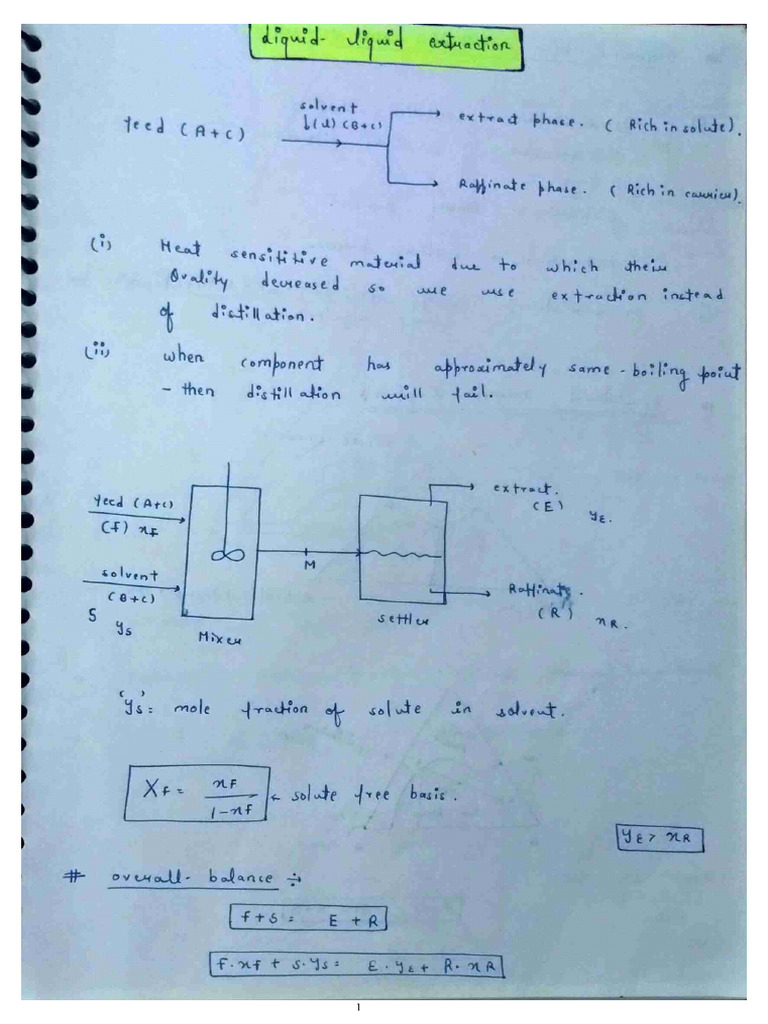 Liquid-liquid extraction
solvent
feed (A+C)
b(l) (B+C)
extract phase. ( Rich in solute).
Raffinate phase. ( Rich in carrier).
(i) Heat sensititive material due to which their
Quality decreased so we use extraction instead
of distillation.
(ii) when component has approximately same-boiling point
- then distillation will fail.
feed (A+C)
(f) xf
solvent
(B+C)
S ys
Mixer
M
settler
extract.
(E) yE.
Raffinate.
(R) xR.
'ys' = mole fraction of solute in solvent.
Xf = xF / 1-xf ← solute free basis.
yE > xR
# overall- balance ÷
f+s = E + R
f.xf + s.ys = E.yE + R.xR
1